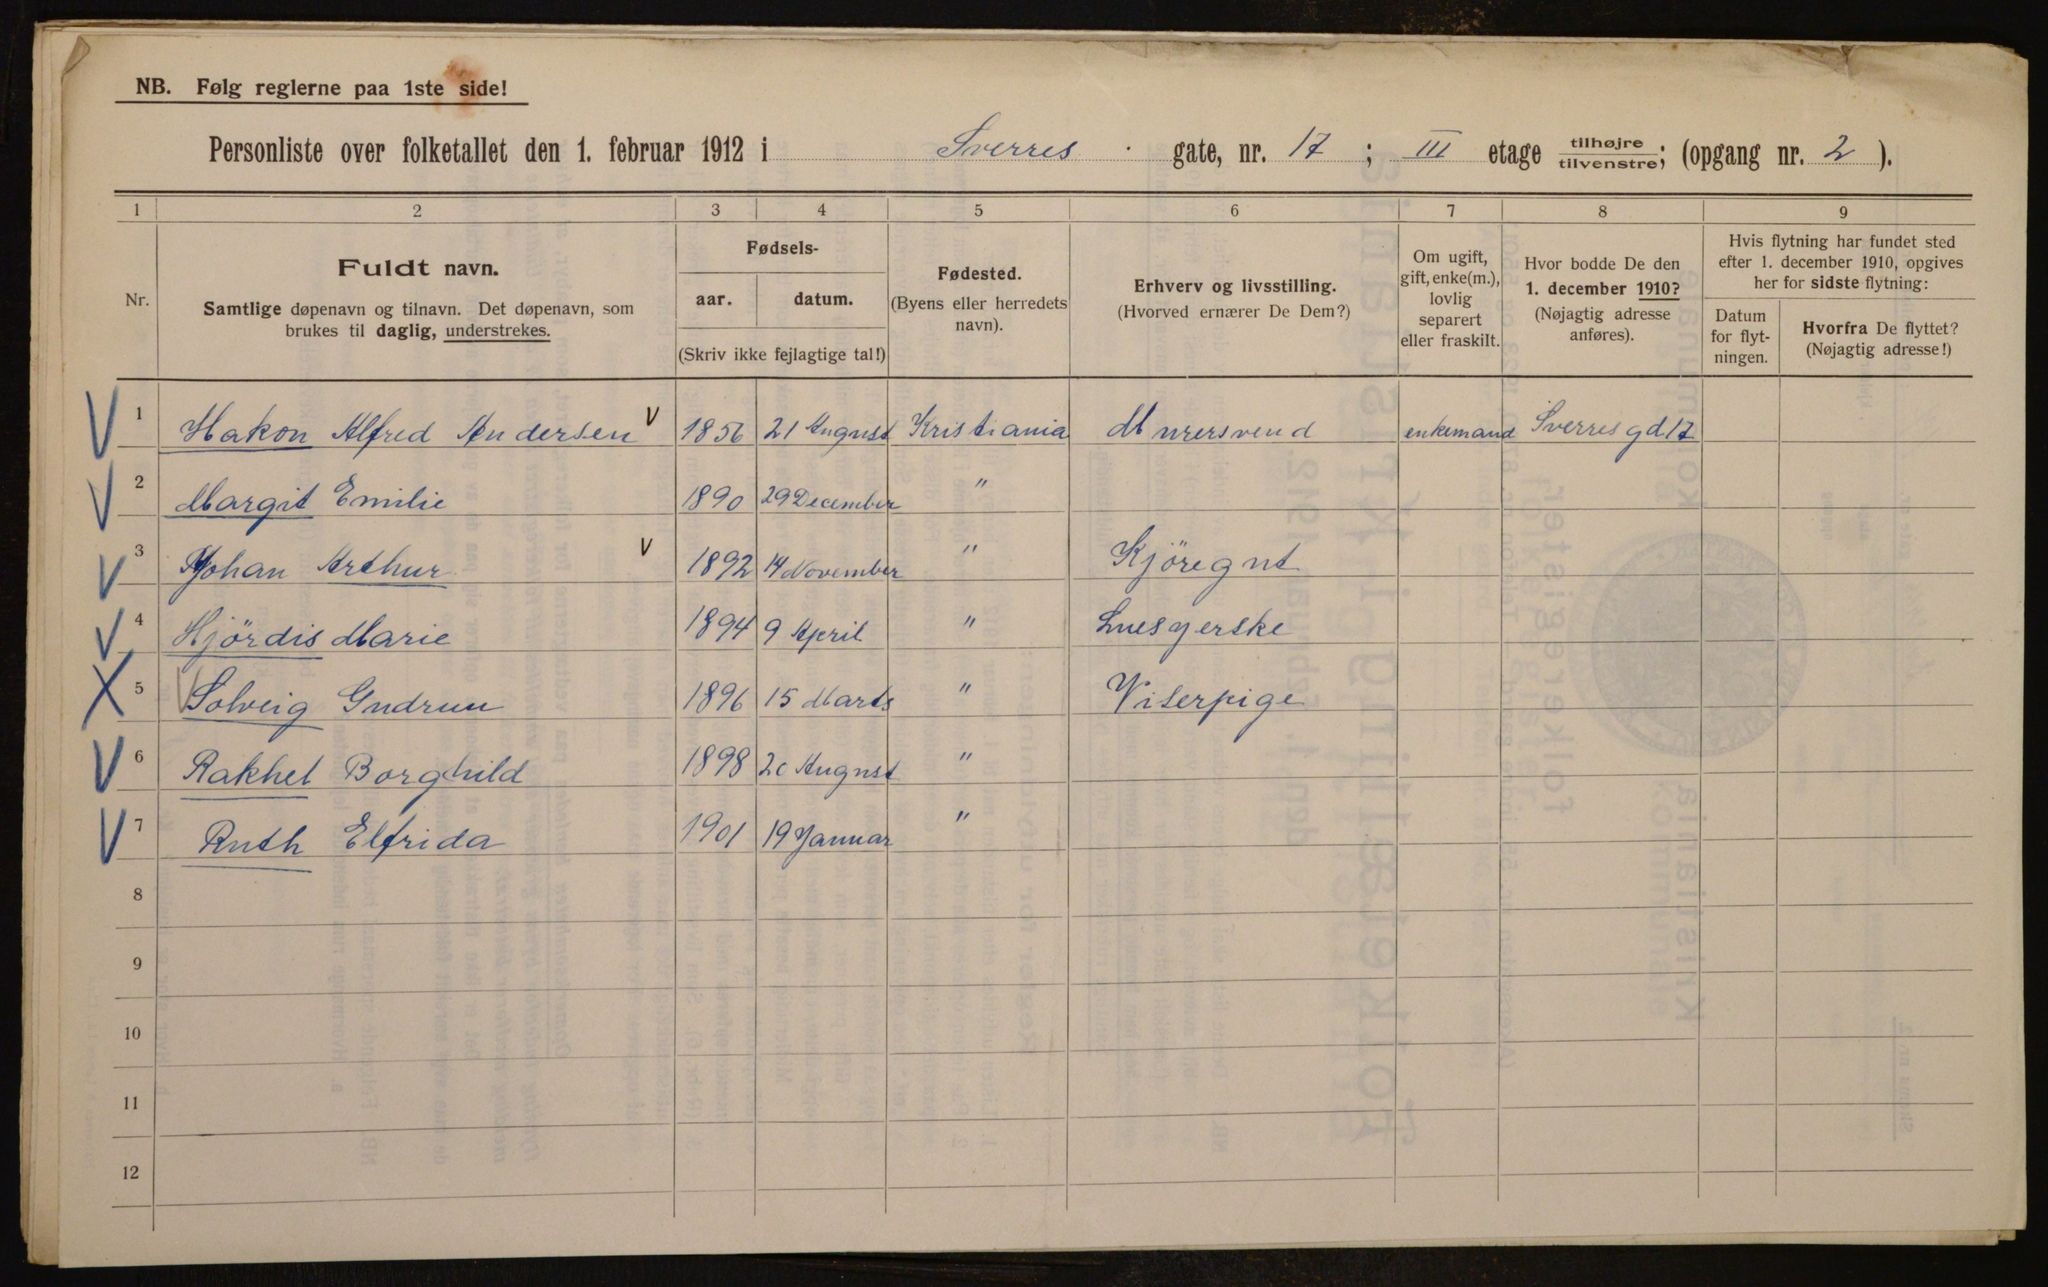 NB. Følg reglerne paa 1ste side!
Personliste over folketallet den 1. februar 1912 i Sverres gate, nr. 17 ; III etage tilhøjre/tilvenstre; (opgang nr. 2 ).
1 2 3 4 5 6 7 8 9
Nr.
Fuldt navn.
Samtlige døpenavn og tilnavn. Det døpenavn, som
brukes til daglig, understrekes.
Fødsels-
aar. datum.
(Skriv ikke fejlagtige tal!)
Fødested.
(Byens eller herredets
navn).
Erhverv og livsstilling.
(Hvorved ernærer De Dem?)
Om ugift,
gift, enke(m.),
lovlig
separert
eller fraskilt.
Hvor bodde De den
1. december 1910?
(Nøjagtig adresse
anføres).
Hvis flytning har fundet sted
efter 1. december 1910, opgives
her for sidste flytning:
Datum
for flyt-
ningen.
Hvorfra De flyttet?
(Nøjagtig adresse!)
1 Hakon Alfred Andersen 1856 21 August Kristiania Murersvend enkemand Sverresgd 17
2 Margit Emilie 1890 29 December "
3 Johan Arthur 1892 14 November " Kjöregut
4 Hjördis Marie 1894 9 April "
5 Solveig Gudrun 1896 15 Marts " Viserpige
6 Rakhel Borghild 1898 20 August "
7 Ruth Elfrida 1901 19 Januar "
8
9
10
11
12